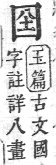 玉篇古文國
字註詳八畫